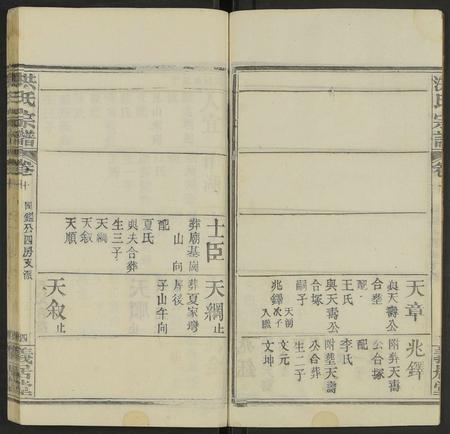 洪氏宗譜
卷十
天章
與天壽公
合墓
配
王氏
與天壽公
合塚
嗣子
兆鐸
兆鐸
附葬天壽
公合塚
配
李氏
附墓天壽
公合葬
生二子
文元
文坤
士臣
葬廟基崗
山向
配
夏氏
與夫合葬
生三子
天綱
天敘
天順
天綱止
葬夏家灣
屋後
子山午向
天敘止
洪氏宗譜
卷十
四房支派
四